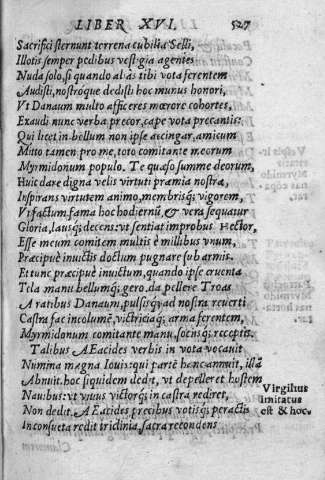 LIBER XVI. 527
Sacrifici sternunt terrena cubilia Selli,
Illotis semper pedibus vestigia agentes
Nuda solo, si quando aliâs tibi vota ferentem
Audisti, nostróque dedisti hoc munus honori,
Vt Danaum multo afficeres mœrore cohortes,
Exaudi nunc verba precor, cape vota precantis:
Qui licet in bellum non ipse accingar, amicum
Mitto tamen pro me, toto comitante meorum
Myrmidonum populo. Te quæso summe deorum,
Huic dare digna velis virtuti præmia nostræ,
Inspirans virtutem animo, membrisq; vigorem,
Vt factum fama hoc hodiernū, & vera sequatur
Gloria, lausq; decens: vt sentiat improbus Hector,
Esse meum comitem multis è millibus vnum,
Præcipuè inuictis doctum pugnare sub armis.
Et tunc præcipuè inuictum, quando ipse cruenta
Tela manu bellumq; gero, da pellere Troas
A ratibus Danaum, pulsisq; ad nostra reuerti
Castra fac incolumē, victriciaq; arma ferentem,
Myrmidonum comitante manu, socijsq; receptis.
Talibus AEacides verbis in vota vocauit
Numina magna Iouis: qui partē hanc annuit, illā
Abnuit. hoc siquidem dedit, vt depelleret hostem
Nauibus: vt viuus victorq; in castra rediret,
Non dedit. AEacides precibus votisq; peractis
Inconsueta redit triclinia, sacra recondens
Virgilius
imitatus
est & hoc.